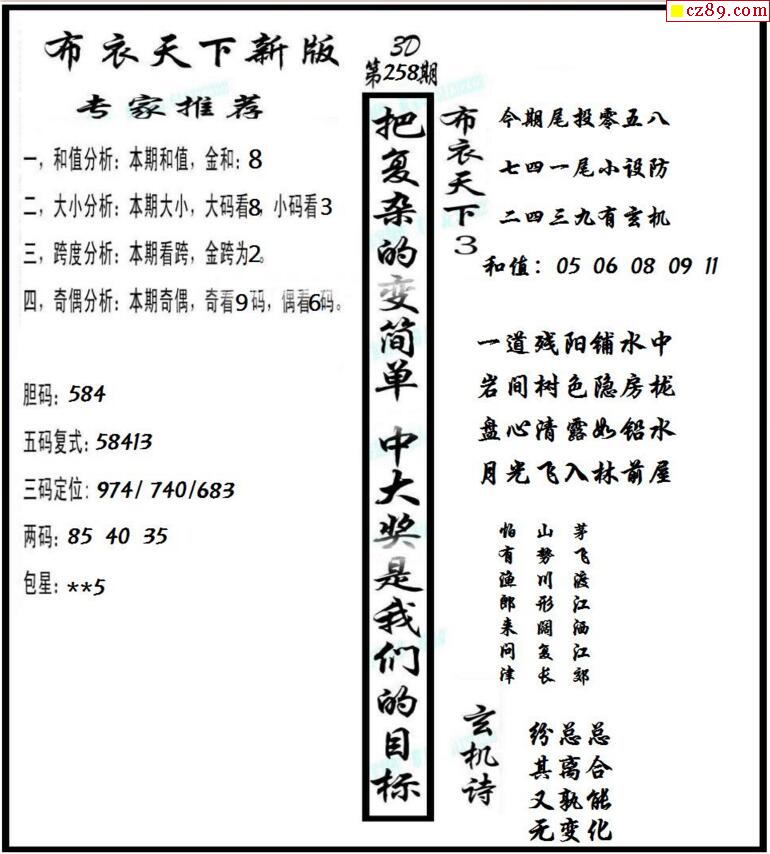 cz89.com
布衣天下新版
专家推荐
一，和值分析：本期和值，金和：8
二，大小分析：本期大小，大码看8，小码看3
三，跨度分析：本期看跨，金跨为2。
四，奇偶分析：本期奇偶，奇看9码，偶看6码。
胆码：584
五码复式：58413
三码定位：974/ 740/683
两码：85 40 35
包星：**5
3D
第258期
把复杂的变简单 中大奖是我们的目标
布衣天下3
今期尾投零五八
七四一尾小设防
二四三九有玄机
和值：05 06 08 09 11
一道残阳铺水中
岩间树色隐房栊
盘心清露如铅水
月光飞入林前屋
茅飞渡江洒江郊
山势川形阔复长
怕有渔郎来问津
玄机诗
纷总总
其离合
又孰能
无变化